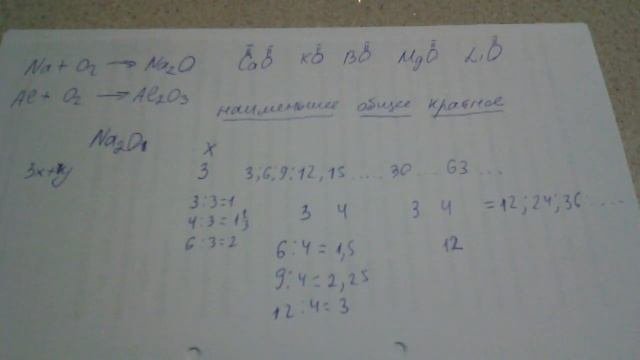 Na + O2 → Na2O CaO KO BO MgO LiO
Al + O2 → Al2O3
наименьшее общее кратное
Na2O1
x
3x+y 3 3; 6; 9; 12, 15 ..... 30 ... 63 ...
3:3=1
4:3=1 1/3 3 4 3 4 = 12; 24; 36; ....
6:3=2
6:4=1,5 12
9:4=2,25
12:4=3